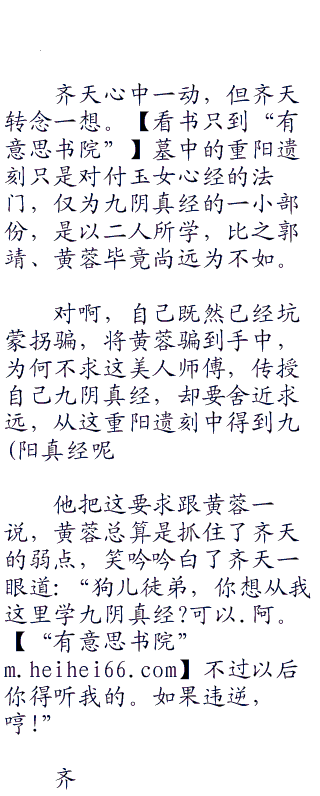 齐天心中一动，但齐天
转念一想。【看书只到“有
意思书院”】墓中的重阳遗
刻只是对付玉女心经的法
门，仅为九阴真经的一小部
份，是以二人所学，比之郭
靖、黄蓉毕竟尚远为不如。
对啊，自己既然已经坑
蒙拐骗，将黄蓉骗到手中，
为何不求这美人师傅，传授
自己九阴真经，却要舍近求
远，从这重阳遗刻中得到九
(阳真经呢
他把这要求跟黄蓉一
说，黄蓉总算是抓住了齐天
的弱点，笑吟吟白了齐天一
眼道：“狗儿徒弟，你想从我
这里学九阴真经?可以.阿。
【“有意思书院”
m.heihei66.com】不过以后
你得听我的。如果违逆，
哼!”
齐